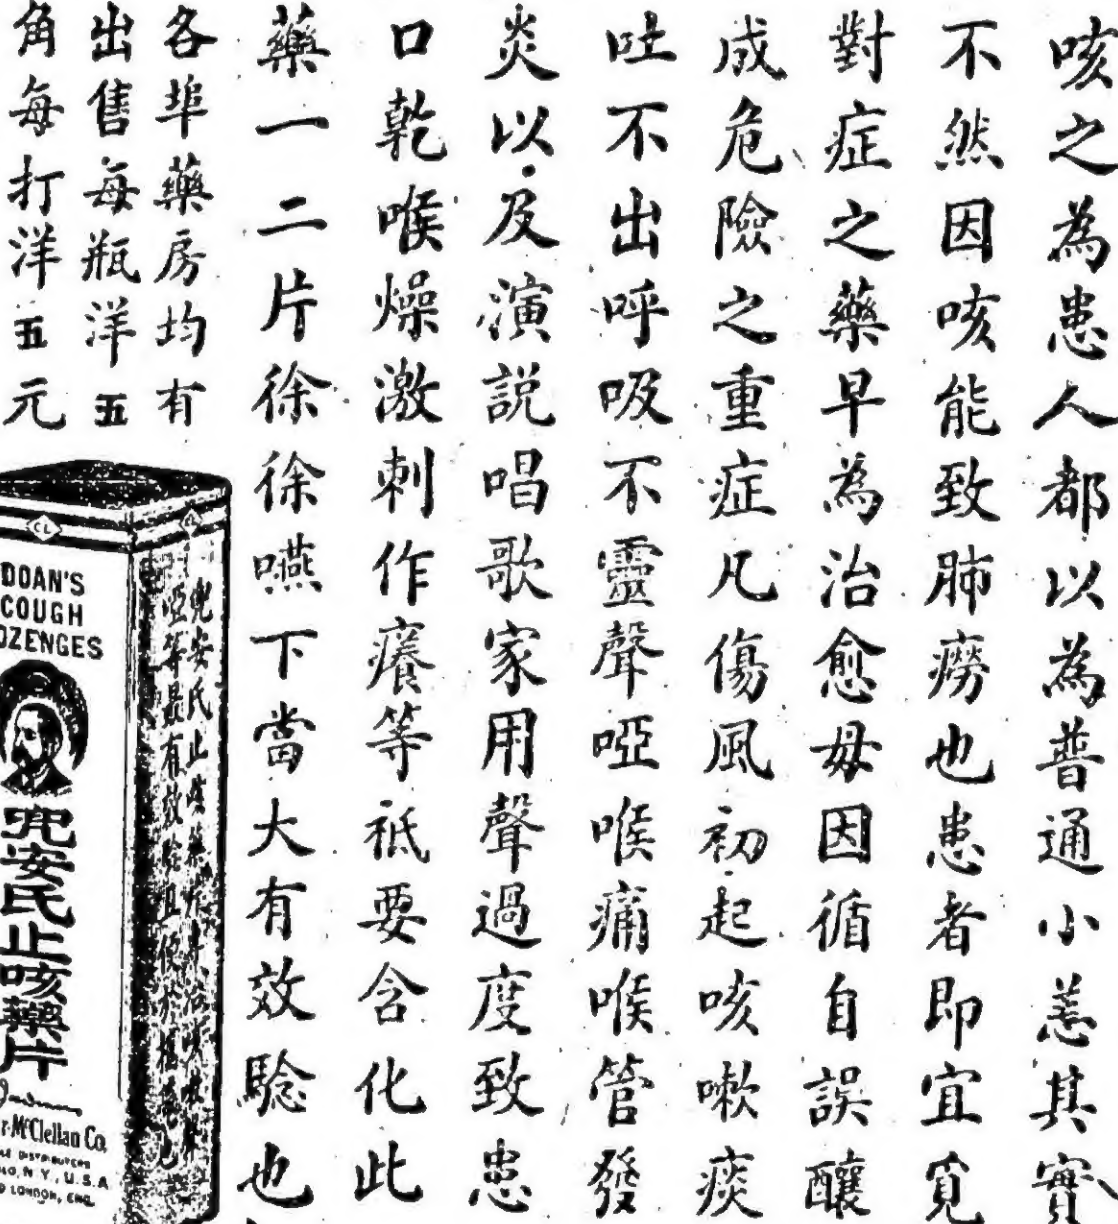 咳之為患人都以為普通小恙其實
不然因咳能致肺癆也患者即宜覓
對症之藥早為治愈毋因循自誤釀
成危險之重症凡傷風初起咳嗽痰
吐不出呼吸不靈聲啞喉痛喉管發
炎以及演説唱歌家用聲過度致患
口乾喉燥激刺作癢等祗要含化此
藥一二片徐徐嚥下當大有效騐也
各埠藥房均有
出售每瓶洋五
角每打洋五元
DOAN'S
COUGH
OZENGES
兜安氏止咳藥片
r-McClellan Co.
DISTRIBUTERS
LO, N.Y., U.S.A.
LONDON, ENG.